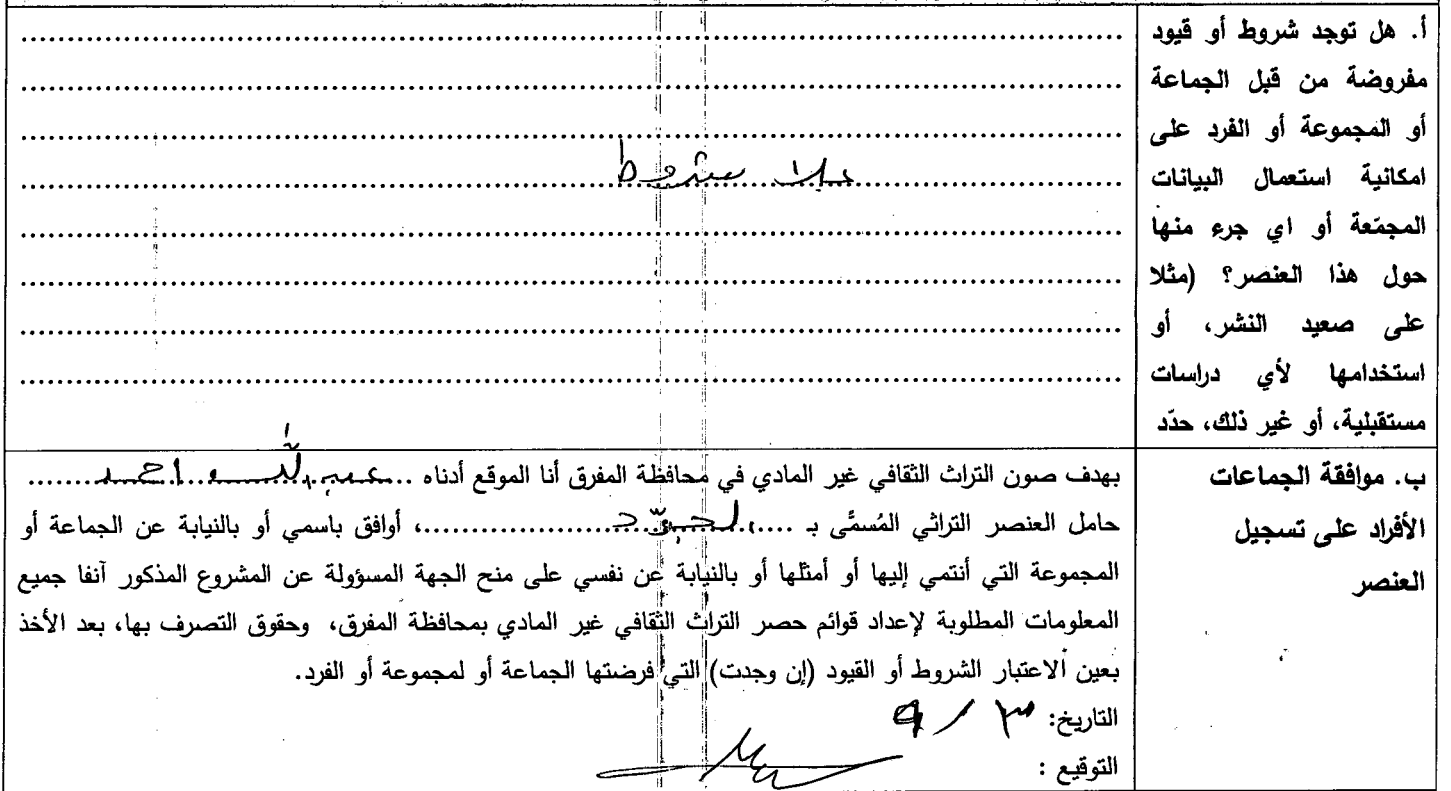 أ. هل توجد شروط أو قيود
مفروضة من قبل الجماعة
أو المجموعة أو الفرد على
امكانية استعمال البيانات
المجمّعة أو اي جرء منها
حول هذا العنصر؟ (مثلا
على صعيد النشر، أو
استخدامها لأي دراسات
مستقبلية، أو غير ذلك، حدّد
بلا شروط
ب. موافقة الجماعات
الأفراد على تسجيل
العنصر
بهدف صون التراث الثقافي غير المادي في محافظة المفرق أنا الموقع أدناه ...عبدالله احمد...
حامل العنصر التراثي المُسمَّى بـ ......، أوافق باسمي أو بالنيابة عن الجماعة أو
المجموعة التي أنتمي إليها أو أمثلها أو بالنيابة عن نفسي على منح الجهة المسؤولة عن المشروع المذكور آنفا جميع
المعلومات المطلوبة لإعداد قوائم حصر التراث الثقافي غير المادي بمحافظة المفرق، وحقوق التصرف بها، بعد الأخذ
بعين الاعتبار الشروط أو القيود (إن وجدت) التي فرضتها الجماعة أو لمجموعة أو الفرد.
التاريخ: ٣ / ٩
التوقيع :